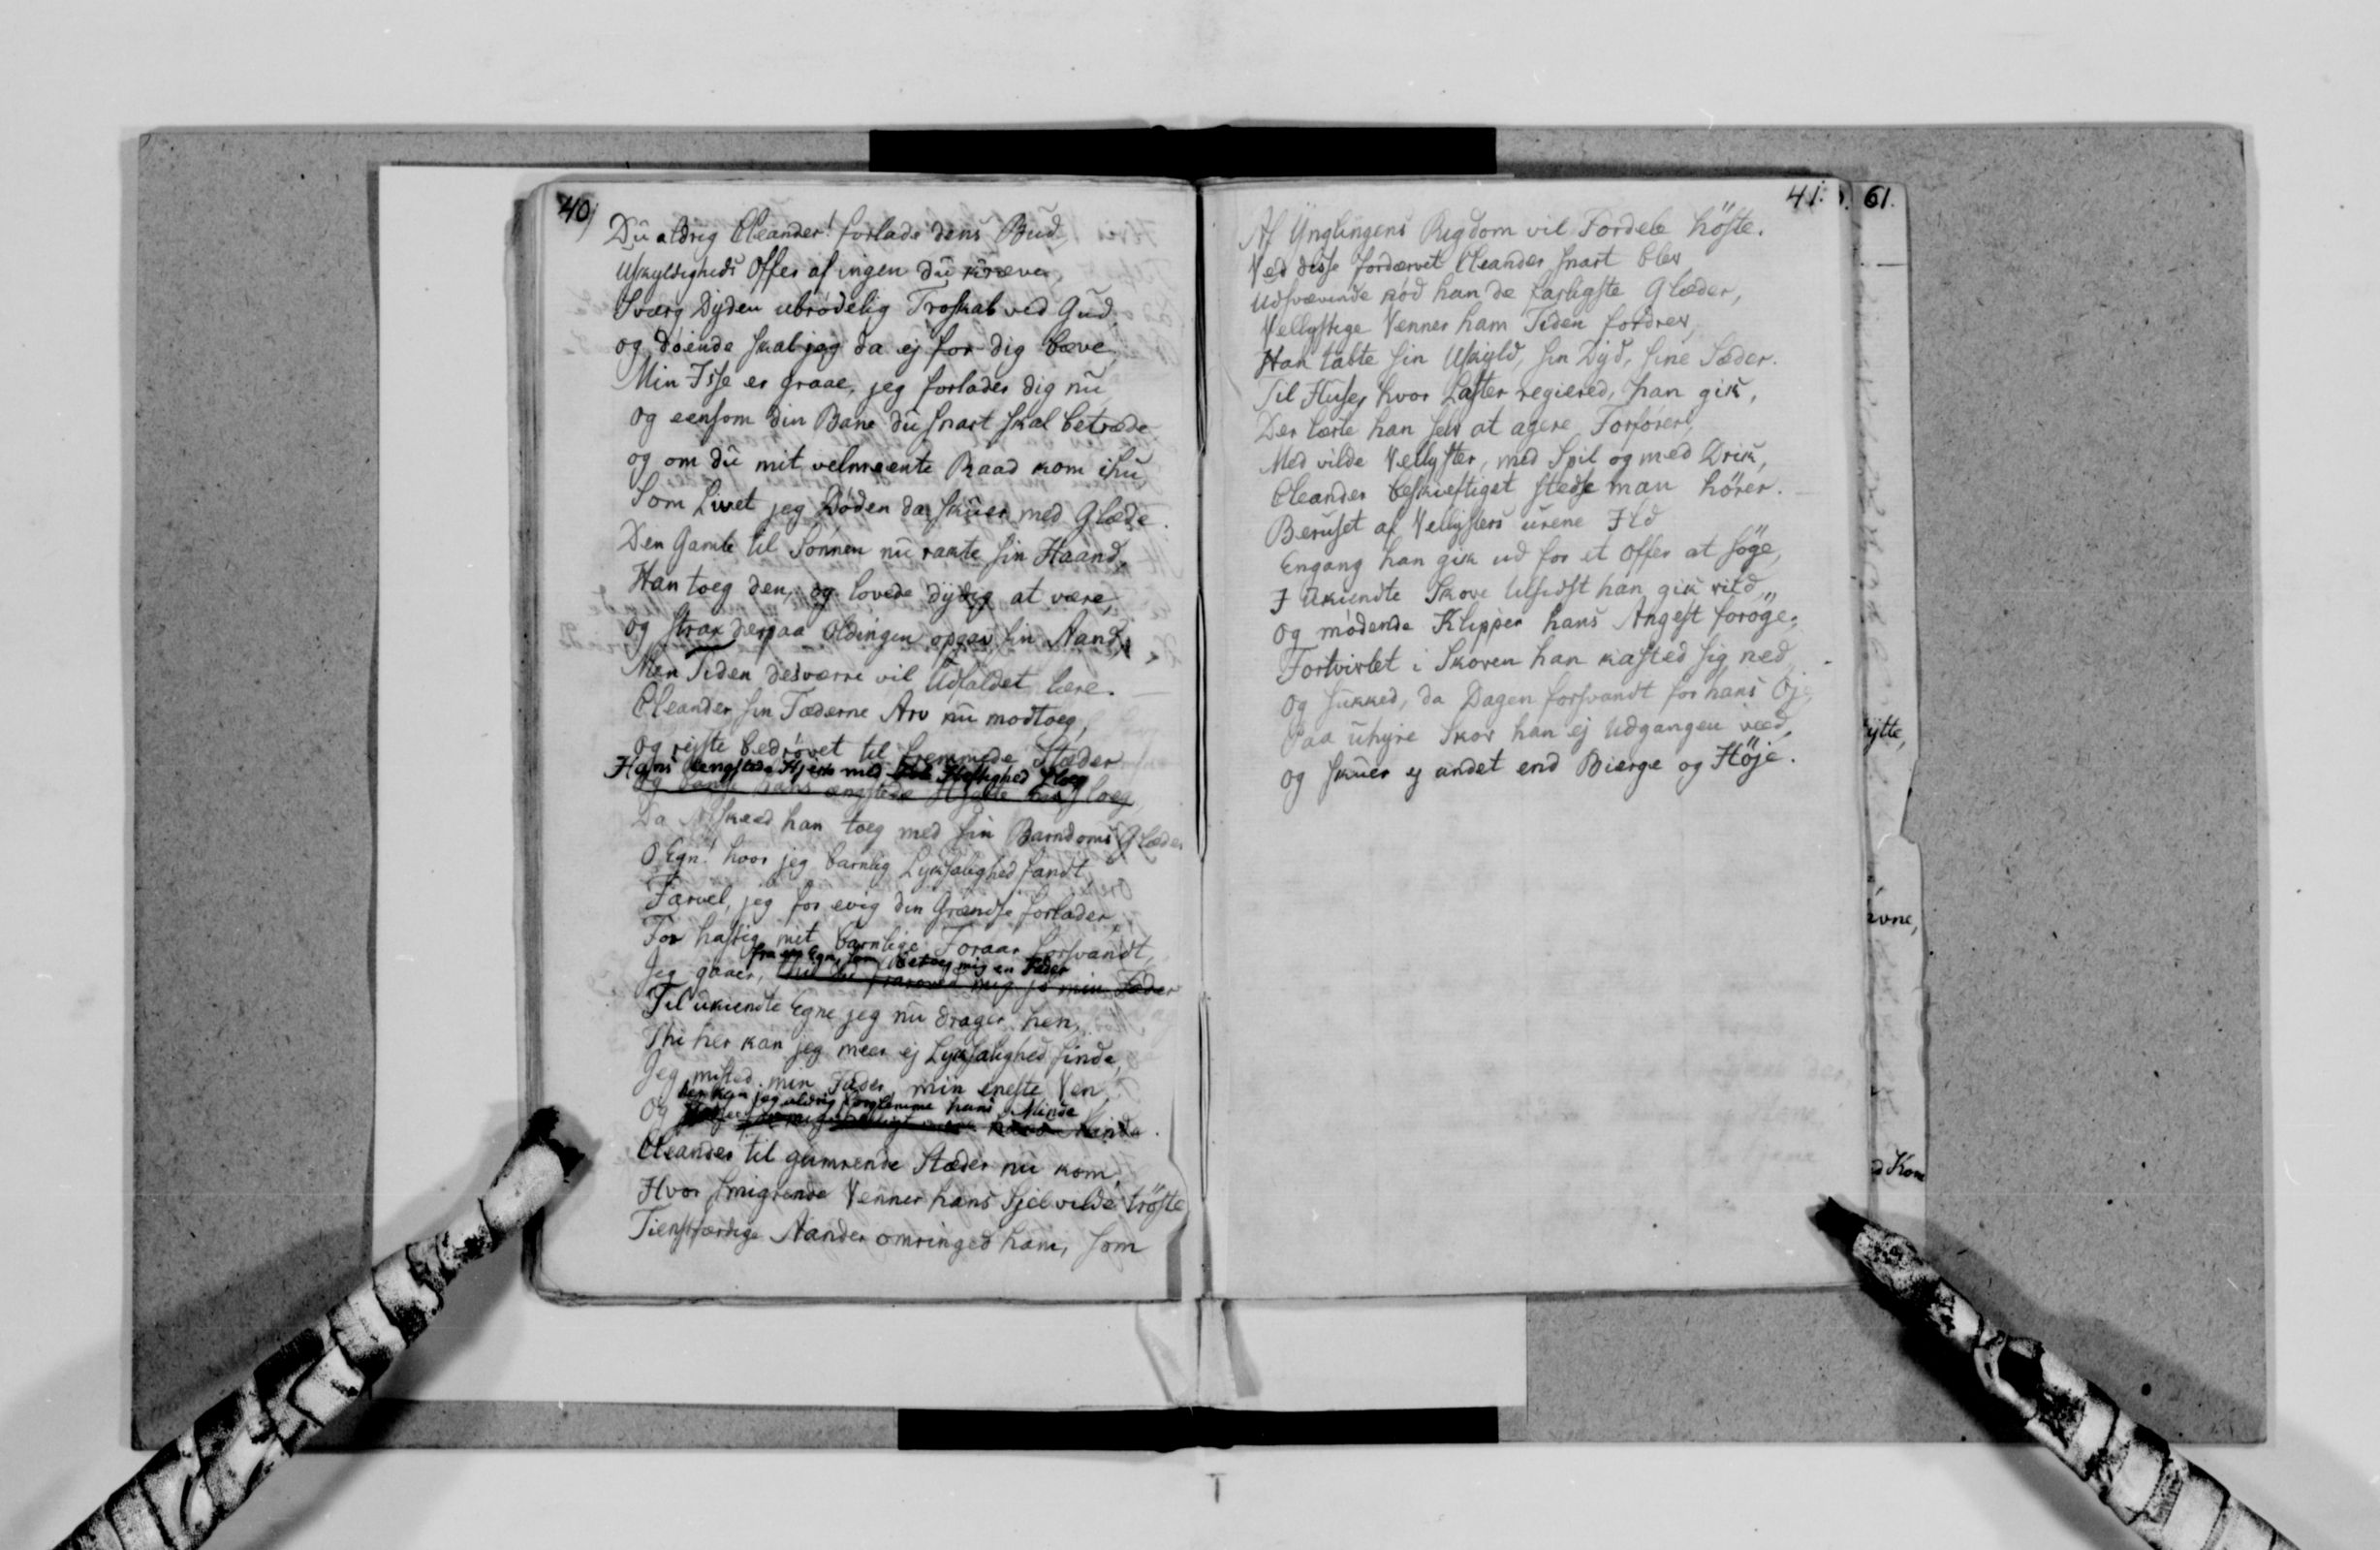 40/
Du aldrig Cleander! forlade dens Bud,
Uskyldigheds Offer af ingen du kræve,
Sværg Dyden ubrödelig Troskab ved Gud,
og döende skal jeg da ej for dig bæve,
Min Isse er graae, jeg forlader dig nu,
og eensom din Bane du snart skal betræde
og om du mit velmeente Raad kom ihu,
Som Livet jeg Döden da skuer med Glæde.
Den Gamle til Sönnen nu rakte sin Haand,
Han toeg den, og lovede dydig at være,
og strax derpaa Oldingen opgav sin Aand,
Men Tiden desværre vil Udfaldet lære. —
Cleander sin Fæderne Arv nu modtoeg,
og rejste bedrövet til fremmede Stæder
Hans ængstede Hjerte med Heftighed sloeg
og hans ængstede Hjerte sloeg
Da Afskeed han toeg med sin Barndoms Glæder
O Egn! hvor jeg barnlig Lyksalighed fandt
Farvel, jeg for evig din Grændse forlader
For hastig mit barnlige Foraar forsvandt,
fra en Egn, som betog mig en Fader
Jeg gaaer, mig jo min Fader
Til ukiendte Egne jeg nu drager hen,
Thi her kan jeg meer ej Lyksalighed finde,
Jeg misted min Fader, min eneste Ven,
her kan jeg aldrig forglemme hans Minde
Og
Cleander til glimrende Stæder nu kom,
Hvor smigrende Venner hans Sjel vilde tröste
Tienstfærdige Aander omringed ham, som
41.
Af Ynglingens Rigdom vil Fordele höste.
Ved disse fordærvet Cleander snart blev
Udsvævende nöd han de farligste Glæder,
Vellystige Venner ham Tiden fordrev,
Han tabte sin Uskyld, sin Dyd, sine Sæder.
Til Huse, hvor Laster regiered, han gik,
Der lærte han selv at agere Forförer,
Med vilde Vellyster, med Spil og med Drik,
Cleander beskieftiget stedse man hörer. —
Beruset af Vellysters urene Ild
Engang han gik ud for et Offer at söge,
I Ukiendte Skove tilsidst han gik vild,
Og mödende Klipper hans Angest foröge.
Fortvivlet i Skoven han kasted sig ned,
Og sukked, da Dagen forsvandt for hans Öje,
Paa uhyre Skov han ej Udgangen veed,
og skuer ej andet end Bierge og Höje.
61.
ytte,
evne,
Kom